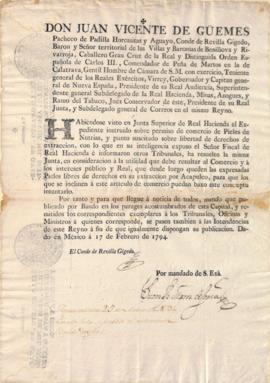 DON JUAN VICENTE DE GÜEMES
Pacheco de Padilla Horcasitas y Aguayo, Conde de Revilla Gigedo,
Baron y Señor territorial de las Villas y Baronías de Benillova y Ri-
varroja, Caballero Gran Cruz de la Real y Distinguida Orden Es-
pañola de Carlos III., Comendador de Peña de Martos en la de
Calatrava, Gentil Hombre de Cámara de S.M. con exercicio, Teniente
General de los Reales Exércitos, Virrey, Gobernador y Capitan gene-
ral de Nueva España, Presidente de su Real Audiencia, Superinten-
dente general Subdelegado de la Real Hacienda, Minas, Azogues, y
Ramo del Tabaco, Juez Conservador de éste, Presidente de su Real
Junta, y Subdelegado general de Correos en el mismo Reyno.
HAbiendose visto en Junta Superior de Real Hacienda el Expediente
instruido sobre permiso de comercio de Pieles de
Nutrias, y punto suscitado sobre libertad de derechos de
extraccion, con lo que en su inteligencia expuso el Señor Fiscal de
Real Hacienda é informaron otros Tribunales, ha resuelto la misma
Junta, en consideracion á la utilidad que debe resultar al Comercio y á
los intereses público y Real, que desde luego queden las expresadas
Pieles libres de derechos en su extraccion por Acapulco, para que los
que se inclinen á este artículo de comercio puedan baxo este concepto
intentarlo.
Por tanto y para que llegue á noticia de todos, mando que
publicado por Bando en los parages acostumbrados de esta Capital, y re-
mitidos los correspondientes exemplares á los Tribunales, Oficinas
y Ministros á quienes corresponde, se pasen tambien á las Intendencias
de este Reyno á fin de que igualmente dispongan su publicacion. Da-
do en México á 17 de Febrero de 1794.
El Conde de Revilla Gigedo.
Por mandado de S. Exâ.